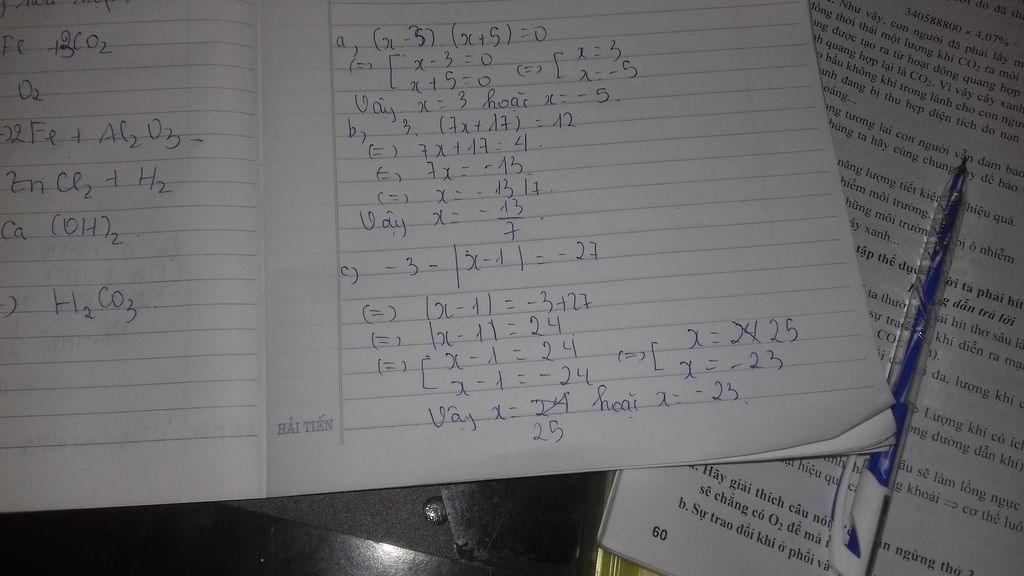 Fe + 3CO2
O2
→ 2Fe + Al2O3
ZnCl2 + H2
Ca(OH)2
H2CO3
a, (x-3) (x+5) = 0
(=) [ x-3 = 0 (=) [ x = 3
x+5 = 0 x = -5
Vậy x = 3 hoặc x = -5.
b, 3. (7x+17) = 12
(=) 7x+17 = 4
(=) 7x = -13
(=) x = -13/7
Vậy x = -13/7
c, -3 - |x-1| = -27
(=) |x-1| = -3+27
(=) |x-1| = 24
(=) [ x-1 = 24 (=) [ x = 24 25
x-1 = -24 x = -23
Vậy x = 24 hoặc x = -23.
25
HẢI TIẾN
340588800 × 4,07%
Như vậy, con người đã phải lấy
đồng thời thải một lượng khí CO2 ra môi
được tạo ra từ hoạt động quang hợp
quang hợp lại là CO2. Vì vậy cây xanh
bầu không khí trong lành cho con
đang bị thu hẹp diện tích do nạn
tương lai con người vẫn đảm bảo
chúng ta hãy cùng chung để bảo
năng lượng tiết kiệm hiệu quả.
nhiễm môi trường
những môi trường bị ô nhiễm.
cây xanh...
tập thể dục ta phải hít
dẫn trả lời
hít thở sâu
khí diễn ra
đa, lượng khí
Lượng khí có ích
đường dẫn khí)
sẽ làm lồng ngực
khoái ⇒ cơ thể
a. Hãy giải thích câu nói
ngừng thở
sẽ chẳng có O2 để mà
b. Sự trao đổi khí ở phổi và
60